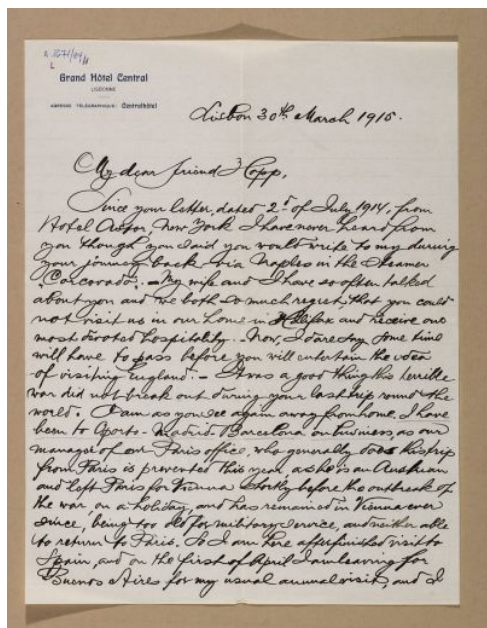 Grand Hôtel Central
LISBONNE
ADRESSE TÉLÉGRAPHIQUE: Centralhôtel
Lisbon 30th March 1915.
My dear friend Hopp,
Since your letter, dated 2d of July 1914, from
Hotel Astor, New York I have never heard from
you though you said you would write to my during
your journey back via Naples in the Steamer
"Corcovado". - My wife and I have so often talked
about you and we both so much regret that you could
not visit us in our home in Halifax and receive our
most devoted hospitality. - Now, I daresay some time
will have to pass before you will entertain the idea
of visiting England. - It was a good thing this terrible
war did not break out during your last trip round the
world. I am as you see again away from home, I have
been to Oporto - Madrid - Barcelona on business, as our
manager of our Paris office, who generally does this trip
from Paris is prevented this year, as he is an Austrian
and left Paris for Vienna shortly before the outbreak of
the war, on a holiday, and has remained in Vienna ever
since, being too old for military service, and neither able
to return to Paris. So I am here after finished visit to
Spain, and on the first of April I am leaving for
Buenos Aires for my usual annual visit, and I